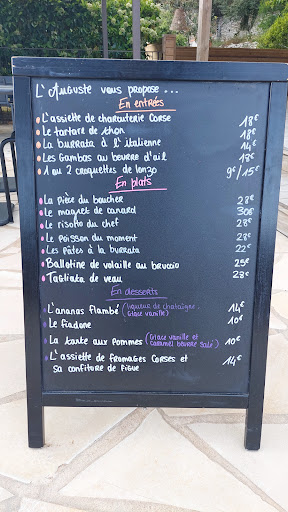 L'Auguste vous propose ...
En entrées
L'assiette de charcuterie Corse 18€
Le tartare de thon 18€
La burrata à l'italienne 14€
Les Gambas au beurre d'ail 18€
1 ou 2 croquettes de lonzo 9€/15€
En plats
La pièce du boucher 28€
Le magret de canard 30€
Le risotto du chef 28€
Le Poisson du moment 28€
Les Pâtes à la burrata 22€
Ballotine de volaille au brucciu 25€
Tagliata de veau 28€
En desserts
L'ananas flambé (liqueur de chataigne, 14€
Glace vanille)
Le fiadone 10€
La tarte aux pommes (Glace vanille et 10€
caramel beurre salé)
L'assiette de fromages Corses et 14€
sa confiture de figue